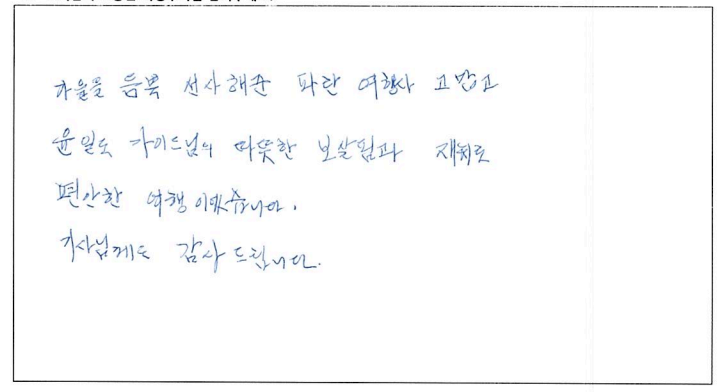 가을을 듬뿍 선사해준 파란 여행사 고맙고
윤일도 가이드님의 따뜻한 보살핌과 재치로
편안한 여행이었습니다.
기사님께도 감사드립니다.